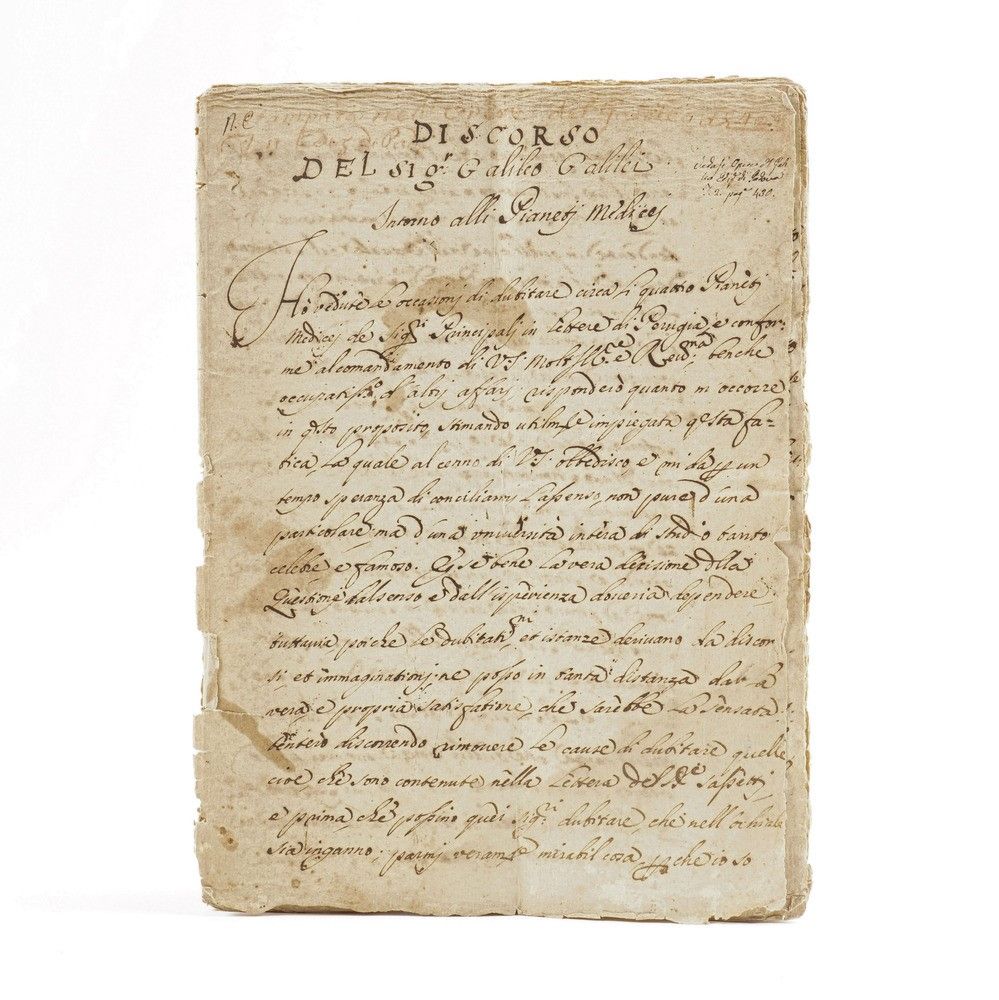 N. E
DISCORSO
DEL Sig.r Galileo Galilei
Vedasi Opere di Gali
leo Ediz. di Padova
T. 2. pag. 430.
Intorno alli Pianetj Medicej
Ho vedute le occasionj di dubitare circa li quattro Pianetj
Medicej de Sig.ri Principalj in lettere di Perugia, e confor-
me al comandamento di V.S. Molt' Ill.re e Reu.ma; benche
occupatiss.o d' altrj affarj; risponderò quanto m'occorre
in q.sto proposito, stimando utilm.te impiegata q.esta fa-
tica, la quale al cenno di V.S. obbedisco, e mi dà un
tempo speranza di conciliarmj l'assenso, non pure d'una
particolare, ma d'una università intera di studio tanto
celebre e famoso. E se bene la vera decisione della
Questione dal senso, e dall'isperienza doveria dependere,
tuttavia poiche le dubitat.ni, et istanze derivano da discor
si, et immaginationj; ne posso in tanta distanza dar la
vera, e propria satisfatione, che sarebbe la sensata
tenterò discorrendo rimovere le cause di dubitare quelle
cioè, che sono contenute nella lettera del S.re Sassettj
e prima, che possino quei Sig.ri dubitare, che nell'ochiale
sia inganno; parmj veram.te mirabil cosa, perche io so